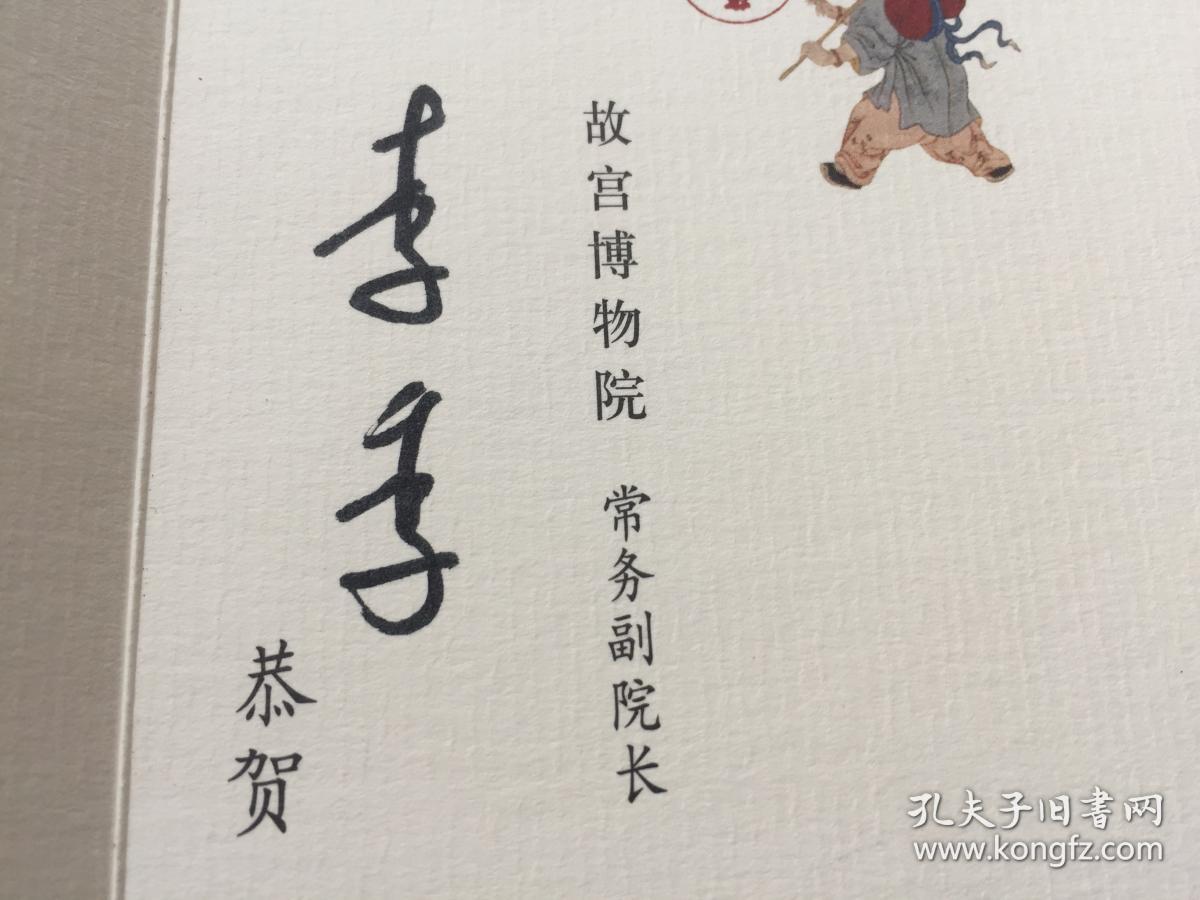 故宫博物院 常务副院长
李季
恭贺
孔夫子旧书网
www.kongfz.com